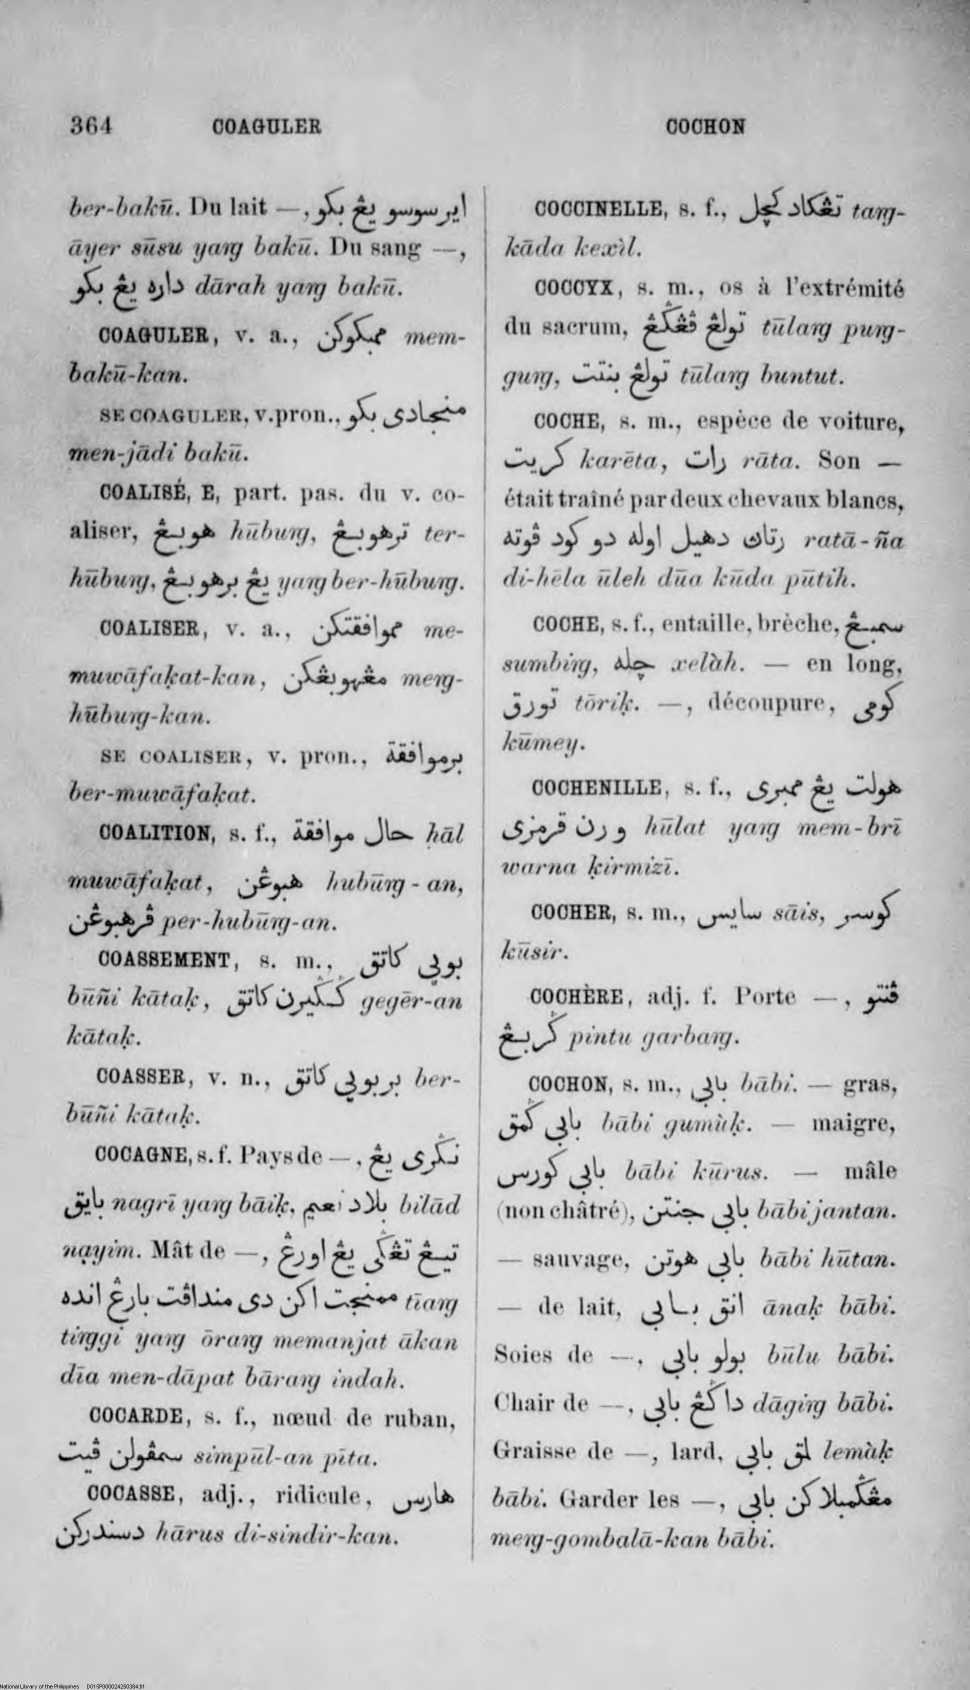 364 COAGULER COCHON
ber-bakū. Du lait —, اير سوسو يڠ بكو
āyer sūsu yaṛg bakū. Du sang —,
داره يڠ بكو dārah yaṛg bakū.
COAGULER, v. a., ممبكوكن mem-
bakū-kan.
SE COAGULER, v. pron., منجادى بكو
men-jādi bakū.
COALISÉ, E, part. pas. du v. co-
aliser, هوبڠ hūbuṛg, ترهوبڠ ter-
hūbuṛg, يڠ برهوبڠ yaṛg ber-hūbuṛg.
COALISER, v. a., مموافقتكن me-
muwāfaḳat-kan, مڠهوبڠكن meṛg-
hūbuṛg-kan.
SE COALISER, v. pron., برموافقة
ber-muwāfaḳat.
COALITION, s. f., حال موافقة ḥāl
muwāfaḳat, هبوڠن hubūṛg-an,
ڤرهبوڠن per-hubūṛg-an.
COASSEMENT, s. m., بوڽي كاتق
būñi kātaḳ, ݢݢيرن كاتق gegēr-an
kātaḳ.
COASSER, v. n., بربوڽي كاتق ber-
būñi kātaḳ.
COCAGNE, s. f. Pays de —, نݢرى يڠ
بايق nagrī yaṛg bāiḳ, بلاد نعيم bilād
naʿyim. Mât de —, تيڠ تڠݢى يڠ اورڠ
ممنجت اكن دى منداڤت بارڠ انده tīaṛg
tiṛggi yaṛg ōraṛg memanjat ākan
dīa men-dāpat bāraṛg indah.
COCARDE, s. f., nœud de ruban,
سمڤولن ڤيت simpūl-an pīta.
COCASSE, adj., ridicule, هارس
دسندركن hārus di-sindir-kan.
COCCINELLE, s. f., تڠكاد كچل taṛg-
kāda kexìl.
COCCYX, s. m., os à l'extrémité
du sacrum, تولڠ ڤڠݢڠ tūlaṛg puṛg-
guṛg, تولڠ بنتت tūlaṛg buntut.
COCHE, s. m., espèce de voiture,
كريت karēta, رات rāta. Son —
était traîné par deux chevaux blancs,
رتاڽ دهيل اوله دو كود ڤوته ratā-ña
di-hēla ūleh dūa kūda pūtih.
COCHE, s. f., entaille, brèche, سمبڠ
sumbiṛg, چله xelàh. — en long,
تورق tōriḳ. —, découpure, كومى
kūmey.
COCHENILLE, s. f., هولت يڠ ممبرى
ورن قرمزى hūlat yaṛg mem-brī
warna ḳirmizī.
COCHER, s. m., سايس sāis, كوسر
kūsir.
COCHÈRE, adj. f. Porte —, ڤنتو
ݢربڠ pintu garbaṛg.
COCHON, s. m., بابي bābi. — gras,
بابي ݢمق bābi gumùḳ. — maigre,
بابي كورس bābi kūrus. — mâle
(non châtré), بابي جنتن bābi jantan.
— sauvage, بابي هوتن bābi hūtan.
— de lait, انق بابي ānaḳ bābi.
Soies de —, بولو بابي būlu bābi.
Chair de —, داݢڠ بابي dāgiṛg bābi.
Graisse de —, lard, لمق بابي lemàḳ
bābi. Garder les —, مڠݢمبلاكن بابي
meṛg-gombalā-kan bābi.
National Library of the Philippines